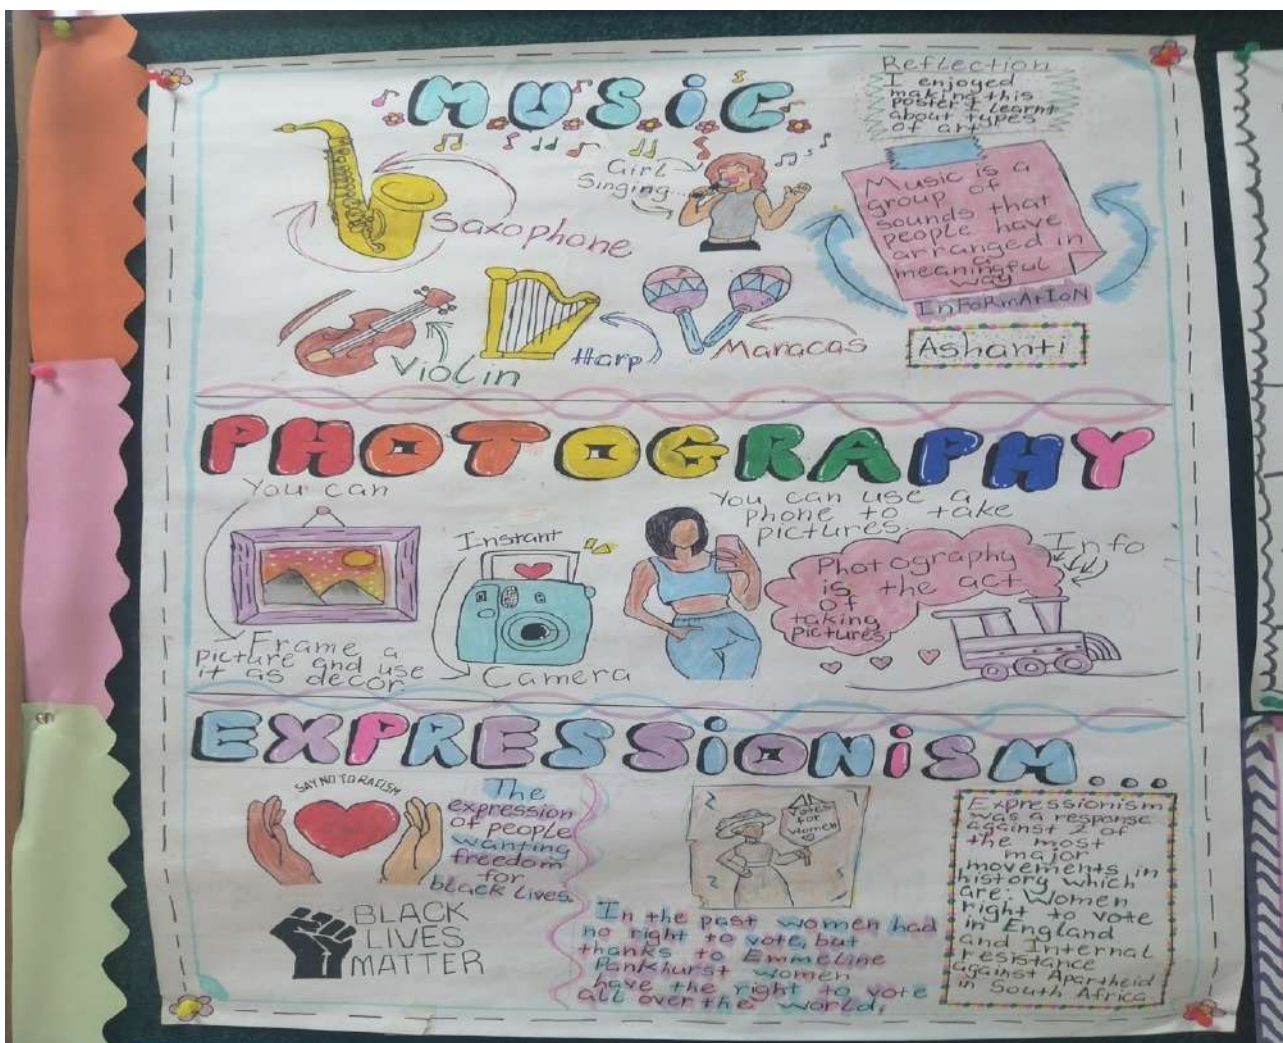 M.U.S.i.C.
Reflection
I enjoyed
making this
poster I learnt
about types
of art
Girl
Singing...
Saxophone
Music is a
group of
sounds that
people have
arranged in
a
meaningful
way
InFoRmAtIoN
Violin
Harp
Maracas
Ashanti
PHOTOGRAPHY
You can
Frame a
picture and use
it as decor
Instant
Camera
You can use a
phone to take
pictures.
Photography
is the act
of
taking
pictures
Info
EXPRESSiONiSM...
SAY NO TO RACISM
The
expression
of people
wanting
freedom
for
black Lives.
BLACK
LIVES
MATTER
Votes
for
women
In the past women had
no right to vote, but
thanks to Emmeline
Pankhurst women
have the right to vote
all over the world,
Expressionism
was a response
against 2 of
the most
major
movements in
history which
are: Women
right to vote
in England
and Internal
resistance
against Apartheid
in South Africa